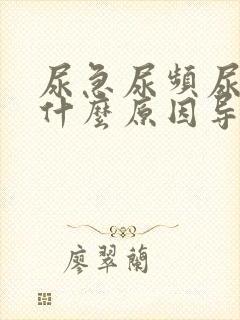 尿急尿頻尿
什麼原因导
廖翠蘭